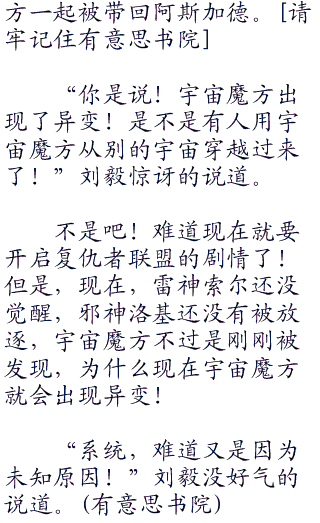 方一起被带回阿斯加德。[请
牢记住有意思书院]
“你是说！宇宙魔方出
现了异变！是不是有人用宇
宙魔方从别的宇宙穿越过来
了！”刘毅惊讶的说道。
不是吧！难道现在就要
开启复仇者联盟的剧情了！
但是，现在，雷神索尔还没
觉醒，邪神洛基还没有被放
逐，宇宙魔方不过是刚刚被
发现，为什么现在宇宙魔方
就会出现异变！
“系统，难道又是因为
未知原因！”刘毅没好气的
说道。(有意思书院)